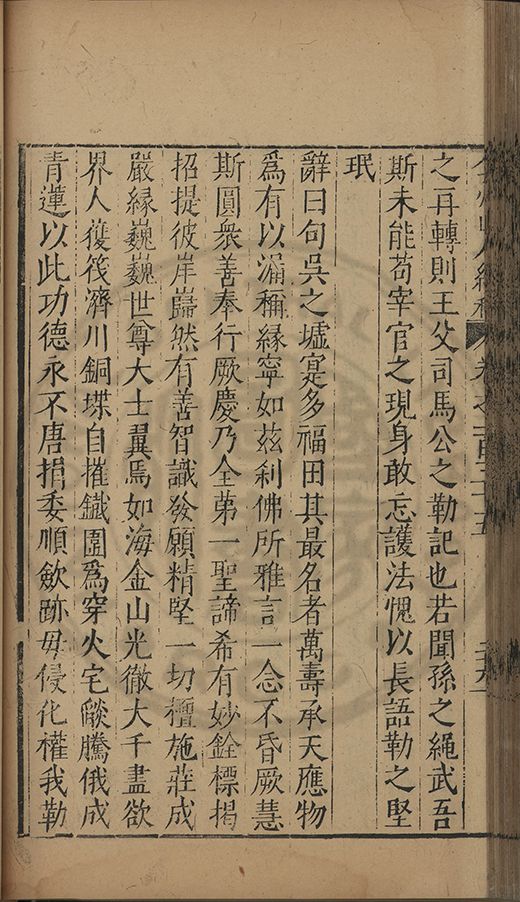 之再轉則王父司馬公之勒記也若聞孫之繩武吾
斯未能苟宰官之現身敢忘護法愧以長語勒之堅
珉
辭曰句吳之墟寔多福田其最名者萬壽承天應物
為有以漏稱緣寧如茲刹佛所雅言一念不昏厥慧
斯圓衆善奉行厥慶乃全第一聖諦希有妙銓標揭
招提彼岸巋然有善智識發願精堅一切檀施莊成
嚴緣巍巍世尊大士翼焉如海金山光徹大千盡欲
界人獲筏濟川銅堞自摧鐵圍為穿火宅燄騰俄成
青蓮以此功德永不唐捐委順斂跡毋侵化權我勒